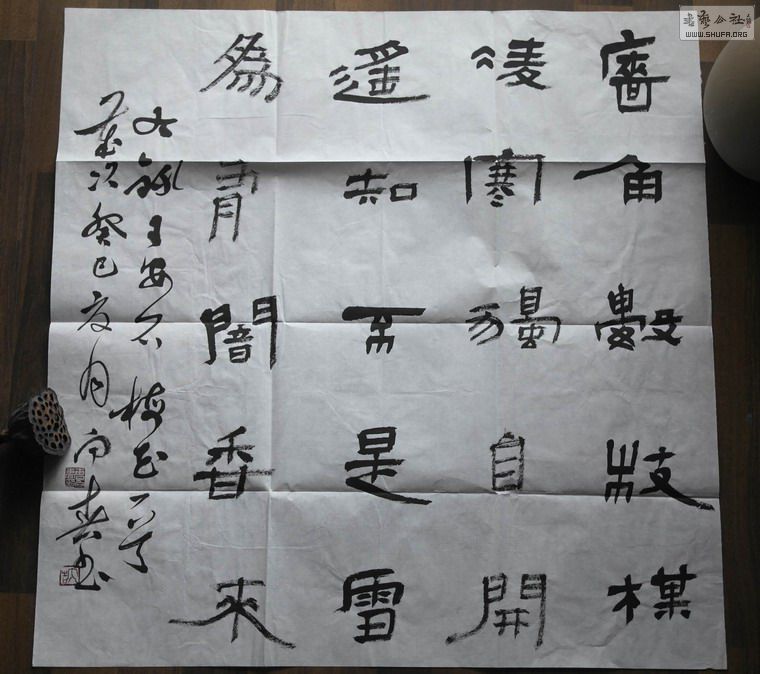 廧角數枝楳
凌寒獨自開
遥知不是雪
為有闇香來
右録王安石梅花一首
歲次癸巳夏月向春書
書藝公社
WWW.SHUFA.ORG